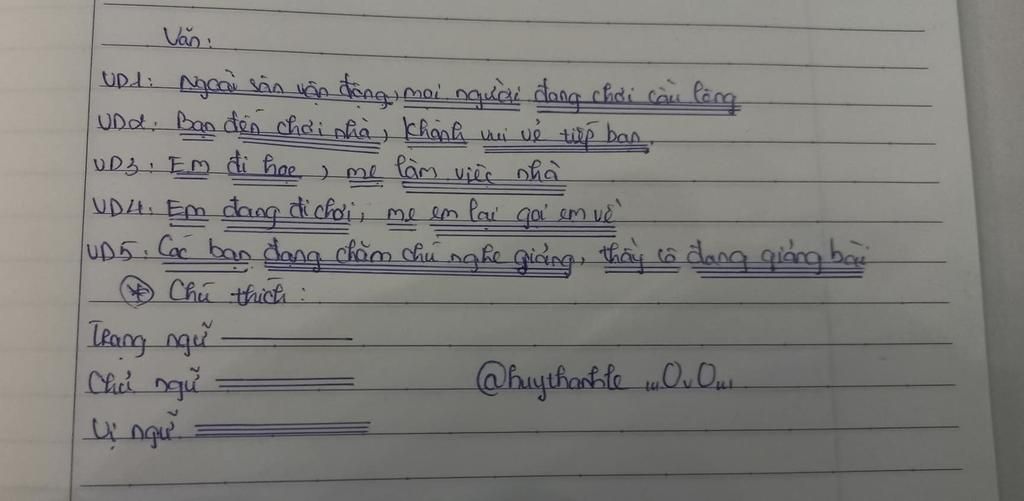 Văn:
VD1: Ngoài sân vận động, mọi người đang chơi cầu lông
VD2: Bạn đến chơi nhà, Khánh vui vẻ tiếp bạn.
VD3: Em đi học, mẹ làm việc nhà
VD4: Em đang đi chơi, mẹ em lại gọi em về
VD5: Các bạn đang chăm chú nghe giảng, thầy cô đang giảng bài
* Chú thích:
Trạng ngữ
Chủ ngữ @huythanhle ...OvO...
Vị ngữ